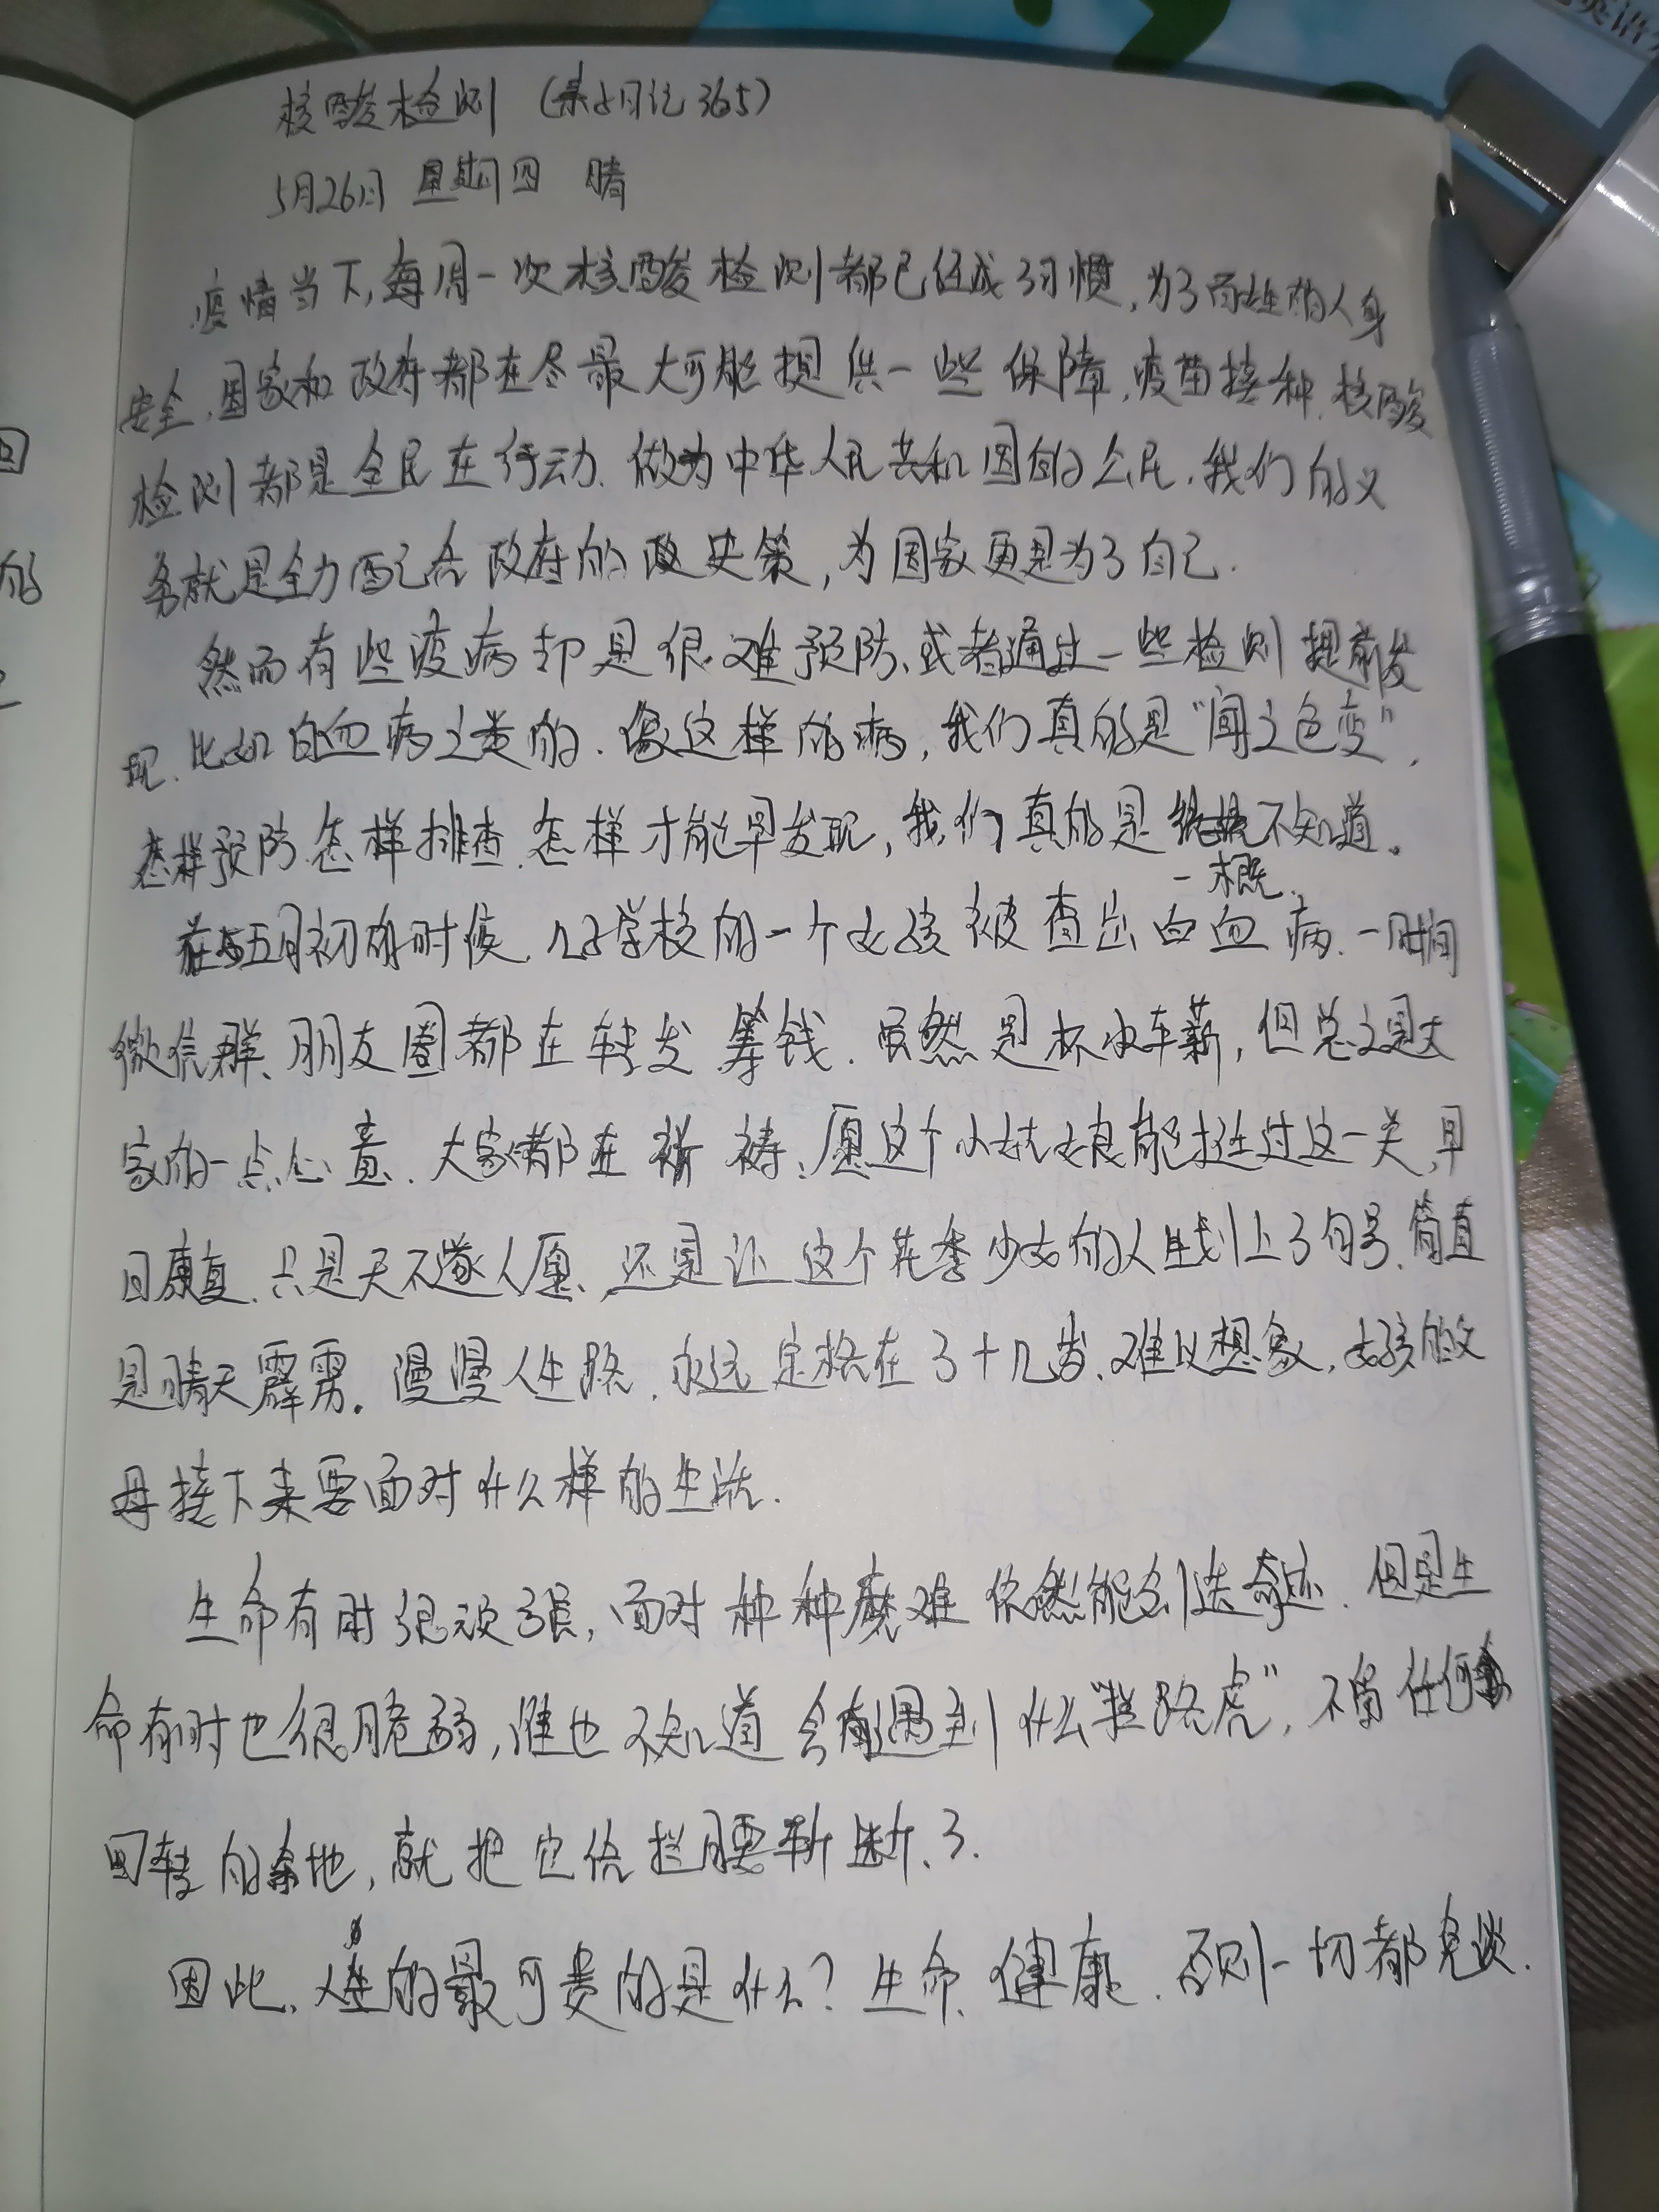 核酸检测 (亲子日记365)
5月26日 星期四 晴
疫情当下,每周一次核酸检测都已经成了习惯,为了百姓的人身
安全,国家和政府都在尽最大可能提供一些保障,疫苗接种、核酸
检测都是全民在行动.做为中华人民共和国的公民,我们的义
务就是全力配合政府的政策,为国家更是为了自己.
然而有些疫病却是很难预防、或者通过一些检测提前发
现.比如白血病之类的.像这样的病,我们真的是"闻之色变",
怎样预防、怎样排查、怎样才能早发现,我们真的是一概不知道。
在五月初的时候,儿子学校的一个女孩被查出白血病.一时间
微信群、朋友圈都在转发筹钱.虽然是杯水车薪,但总之是大
家的一点心意.大家都在祈祷、愿这个小姑娘能挺过这一关,早
日康复.只是天不遂人愿、还是让这个花季少女的人生划上了句号.简直
是晴天霹雳.漫漫人生路,永远定格在了十几岁.难以想象,女孩的父
母接下来要面对什么样的生活.
生命有时很顽强,面对种种磨难依然能创造奇迹.但是生
命有时也很脆弱,谁也不知道会遇到什么"拦路虎",不留任何
回转的余地,就把它给拦腰斩断了.
因此,人生的最可贵的是什么?生命、健康.否则一切都免谈.
回
的
英语